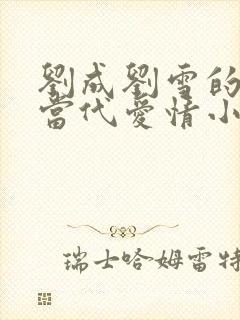 劉成劉雪的
當代愛情小
瑞士哈姆雷特